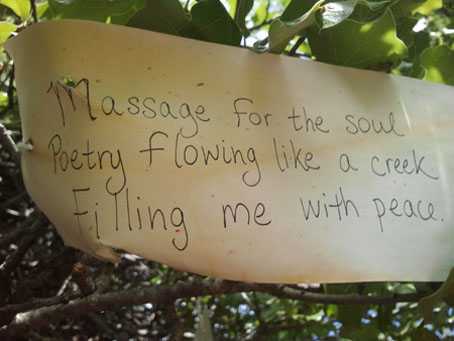 Massage for the soul
Poetry flowing like a creek
Filling me with peace.